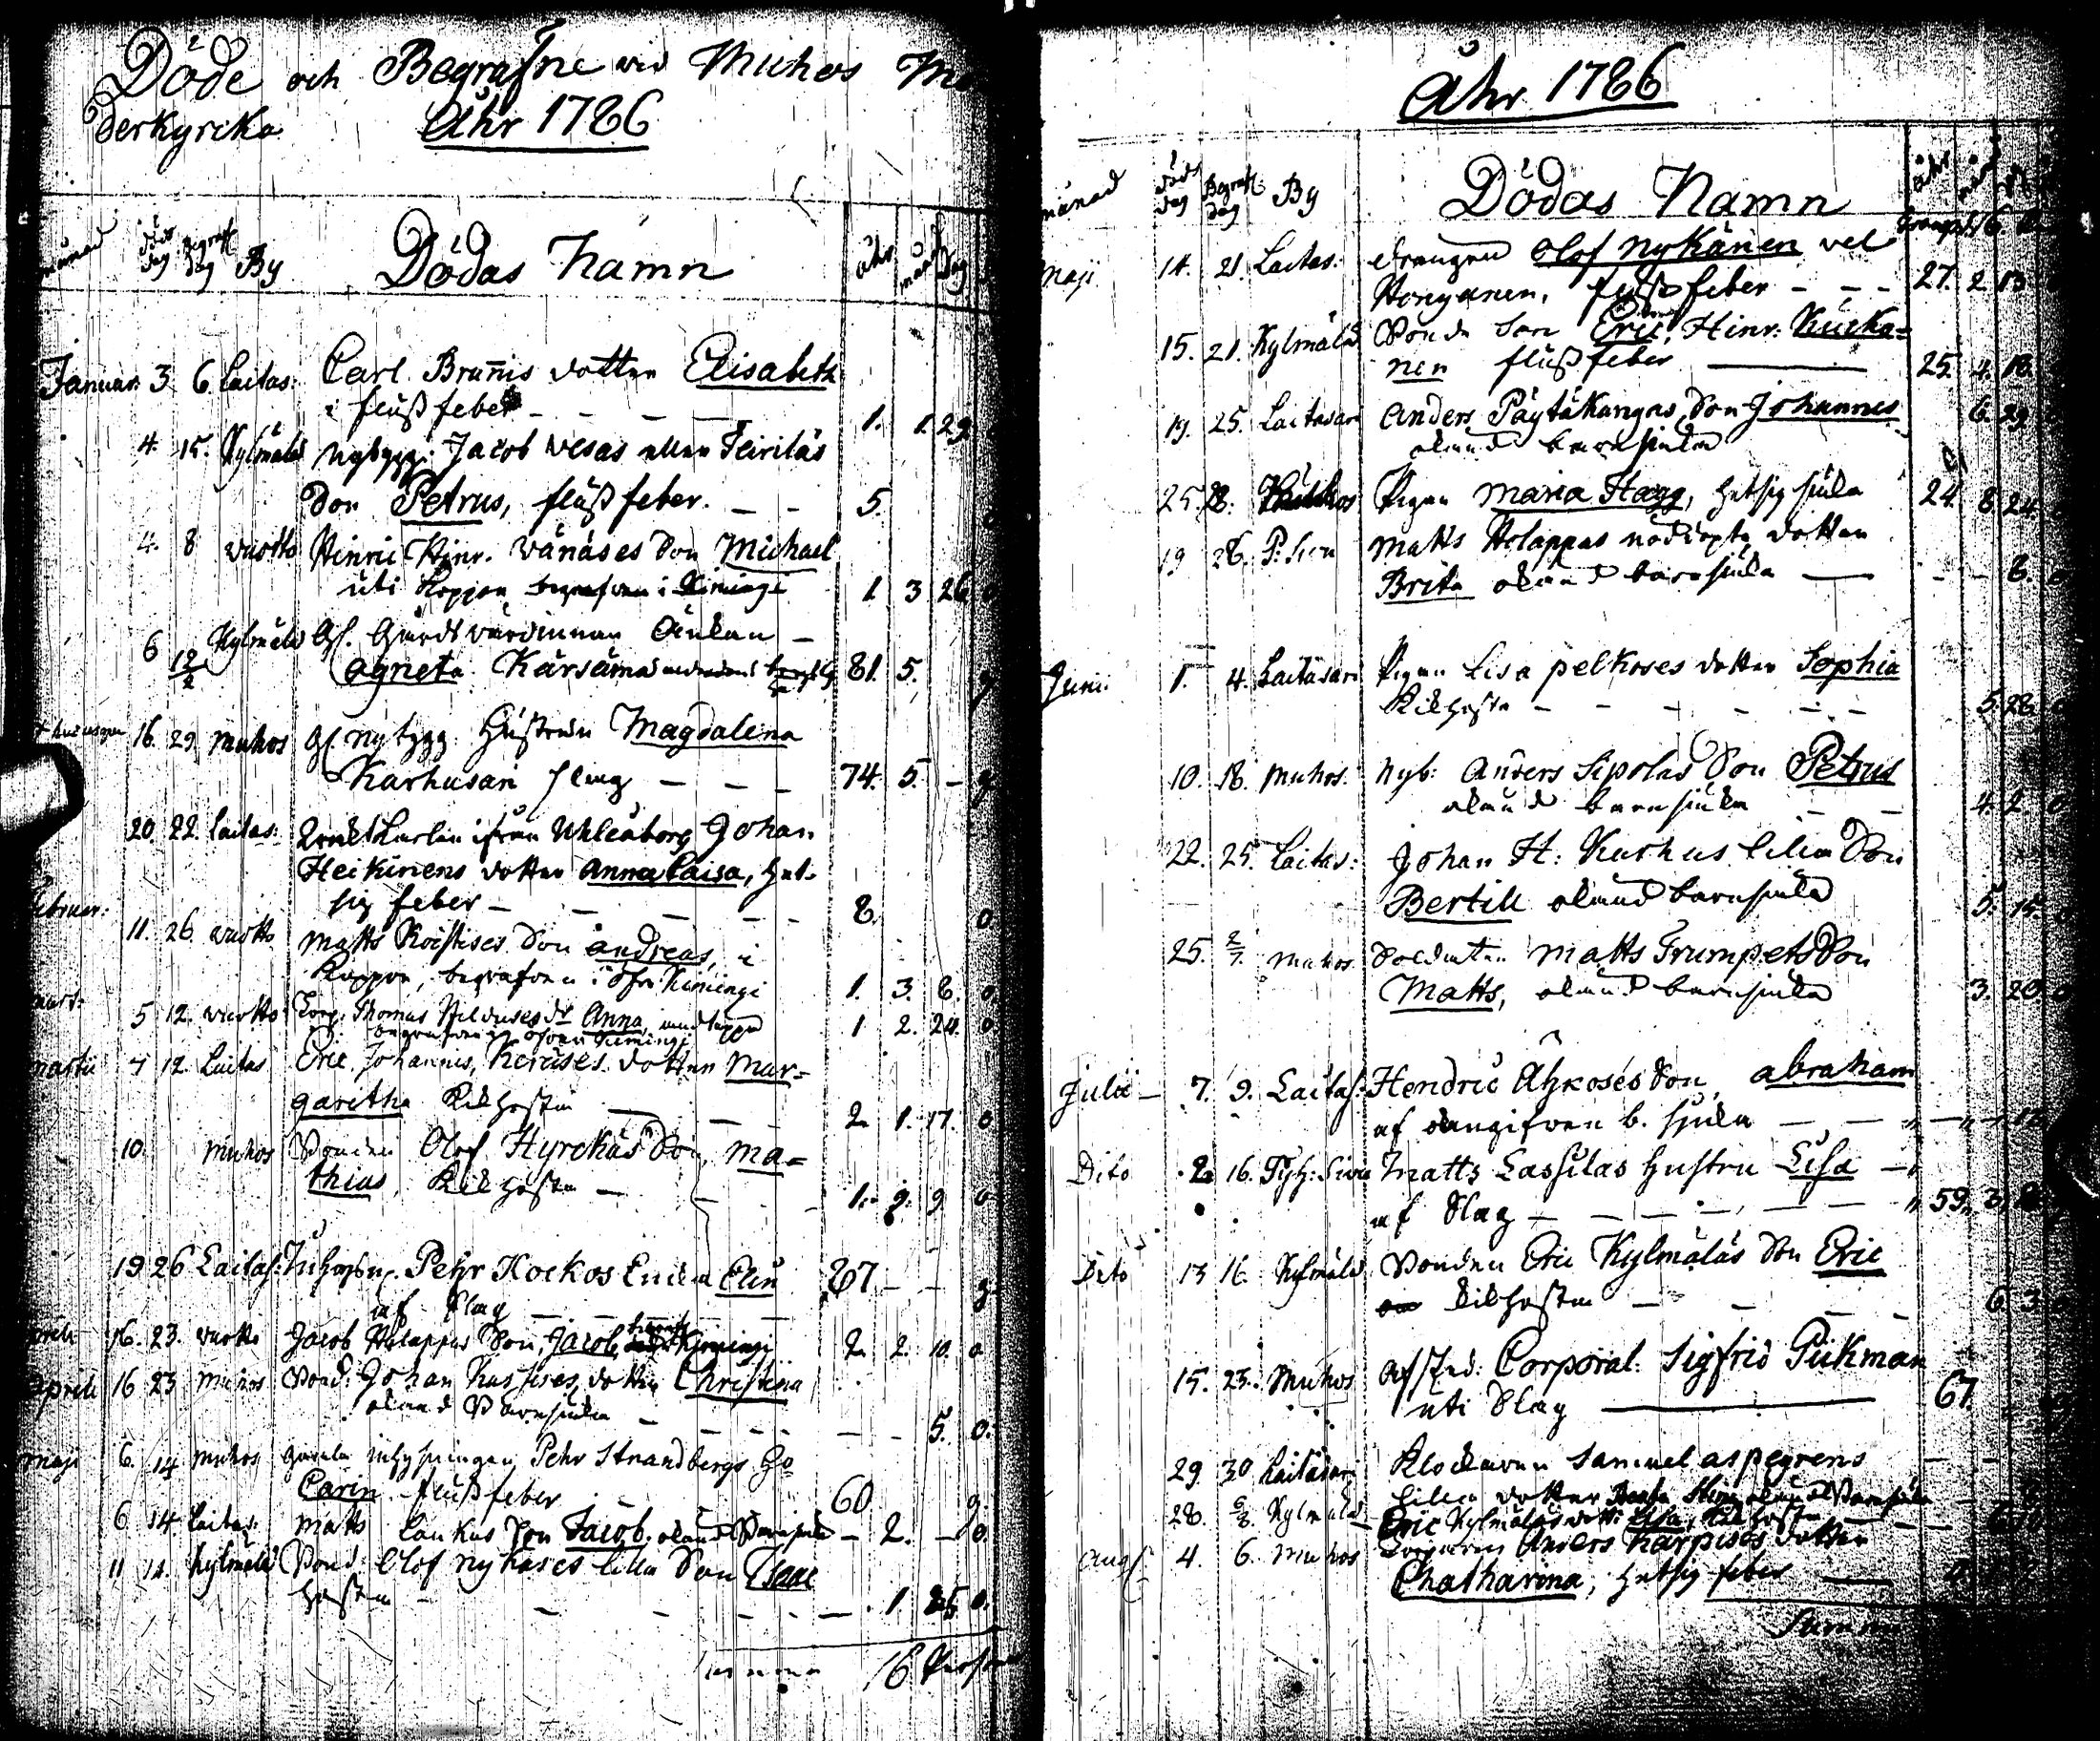 Döde och Begrafne vid Muhos Mo
derkyrka Åhr 1786
månad döds dag Begraf dag By Dödas Namn åhr mån Dag
Januar: 3 6 Laitas: Carl Brunnis dotter Elisabeth
i flußfeber 1. 1. 29
4. 15. Kylmälä nybygg: Jacob Vesas eller
Son Petrus, flußfeber. 5.
4. 8 Vuotto Hinric Hinr. Vänäses Son Michael
uti Koppor begrafven i Kiminge 1 3 26 0
6 12/2 Kylmälä Gl. Gårdsvärdinnan Änkan
Agneta Kärsämä 81. 5.
16. 29 Muhos Gl. nybygg. Hustrun Magdalena
Karhusari slag 74. 5. -
20. 22. Laitas: ifrån Uhleåborg Johan
Heikinens dotter Anna Caisa, het-
sig feber 8. 0
Februar:
11. 26. Vuotto Matts Koistises Son Andreas, i
Koppor, begrafven i Öfre Kiminge 1. 3. 8. 0
5 12. Vuotto Corp. Thomas dr Anna,
begrafven i Öfver Kiminge 1 2. 24. 0
Martii 7 12. Laitas Eric Johannis, dotter Mar=
garetha Kikhosta 2 1. 17. 0
10. Muhos Bonden Olof Hyrckäs Son Ma=
thias, Kikhosta 1. 9. 9 0
19 26 Laitas: Pehr Kockos Enka Elin 67 - -
af slag
16. 23. Vuotto Jacob Holappas Son, Jacob, Kiminge 2 2. 10. 0
Aprili 16 23 Muhos Bond: Johan Kassises dotter Christina
okänd Barnsjuka 5. 0.
Maji 6. 14 Muhos gamla inhysningen Pehr Strandbergs
Carin flußfeber 60 9.
6 14 Laitas: Matts Laukas Son Jacob. okänd Barnsjuka - 2. - 0.
11 14. Kylmälä Bond: Olof Nykäses lilla Son Isaac
hosta 1 25 0.
Summa 16 Person
Åhr 1786
månad döds dag Begraf: dag By Dödas Namn åhr mån
Maji 14. 21. Laitas. Drängen Olof Nykänen vel
Honganen, fluß feber - - - 27. 2 13
15. 21. Kylmälä Bonde Son Eric Hinr: Kucka=
nen flußfeber 25. 4. 18.
19. 25. Laitasari Anders Päytäkangas, Son Johannes
okänd barnsjuka 6. 29
25. 28. Muhos Pigan Maria Hagg, hetsig sjuka 24. 8 24
19 28. P: Sun Matts Holappas nöddöpta dotter
Brita okänd barnsjuka - - 8. 0
Junii 1. 4. Laitasari Pigan Lisa Pelkoses dotter Sophia
Kikhosta - - - 5. 28. 0
10. 18. Muhos. Nyb: Anders Sipolas Son Petrus
okänd barnsjuka - - 4. 2. 0
22. 25. Laitas: Johan H: Karhus lilla Son
Bertill okänd barnsjuka 5. 15.
25. 2/7 Muhos Soldaten Matts Trumpets Son
Matts, okänd barnsjuka 3. 20. 0
Julii - 7. 9. Laitas: Hendric Ähkoses Son Abraham
af oangifven b. sjuka
Dito 2 16. Tyh: Matts Lassilas hustru Lisa
af Slag 59. 3
Dito 13 16. Kylmälä Bonden Eric Kylmäläs Son Eric
Kikhosta 6 3 0
15. 23. Muhos Afsked: Corporal: Sigfrid Pükman
uti Slag 67
29 30 Laitasari Klockaren Samuel Aspegrens
lilla dotter okänd Barnsjuka
28. 6/8. Kylmälä Eric Kylmäläs dott: Lisa, Kikhosta
Aug: 4. 6. Muhos Anders Karpises dotter
Chatharina, hetsig feber
Summa